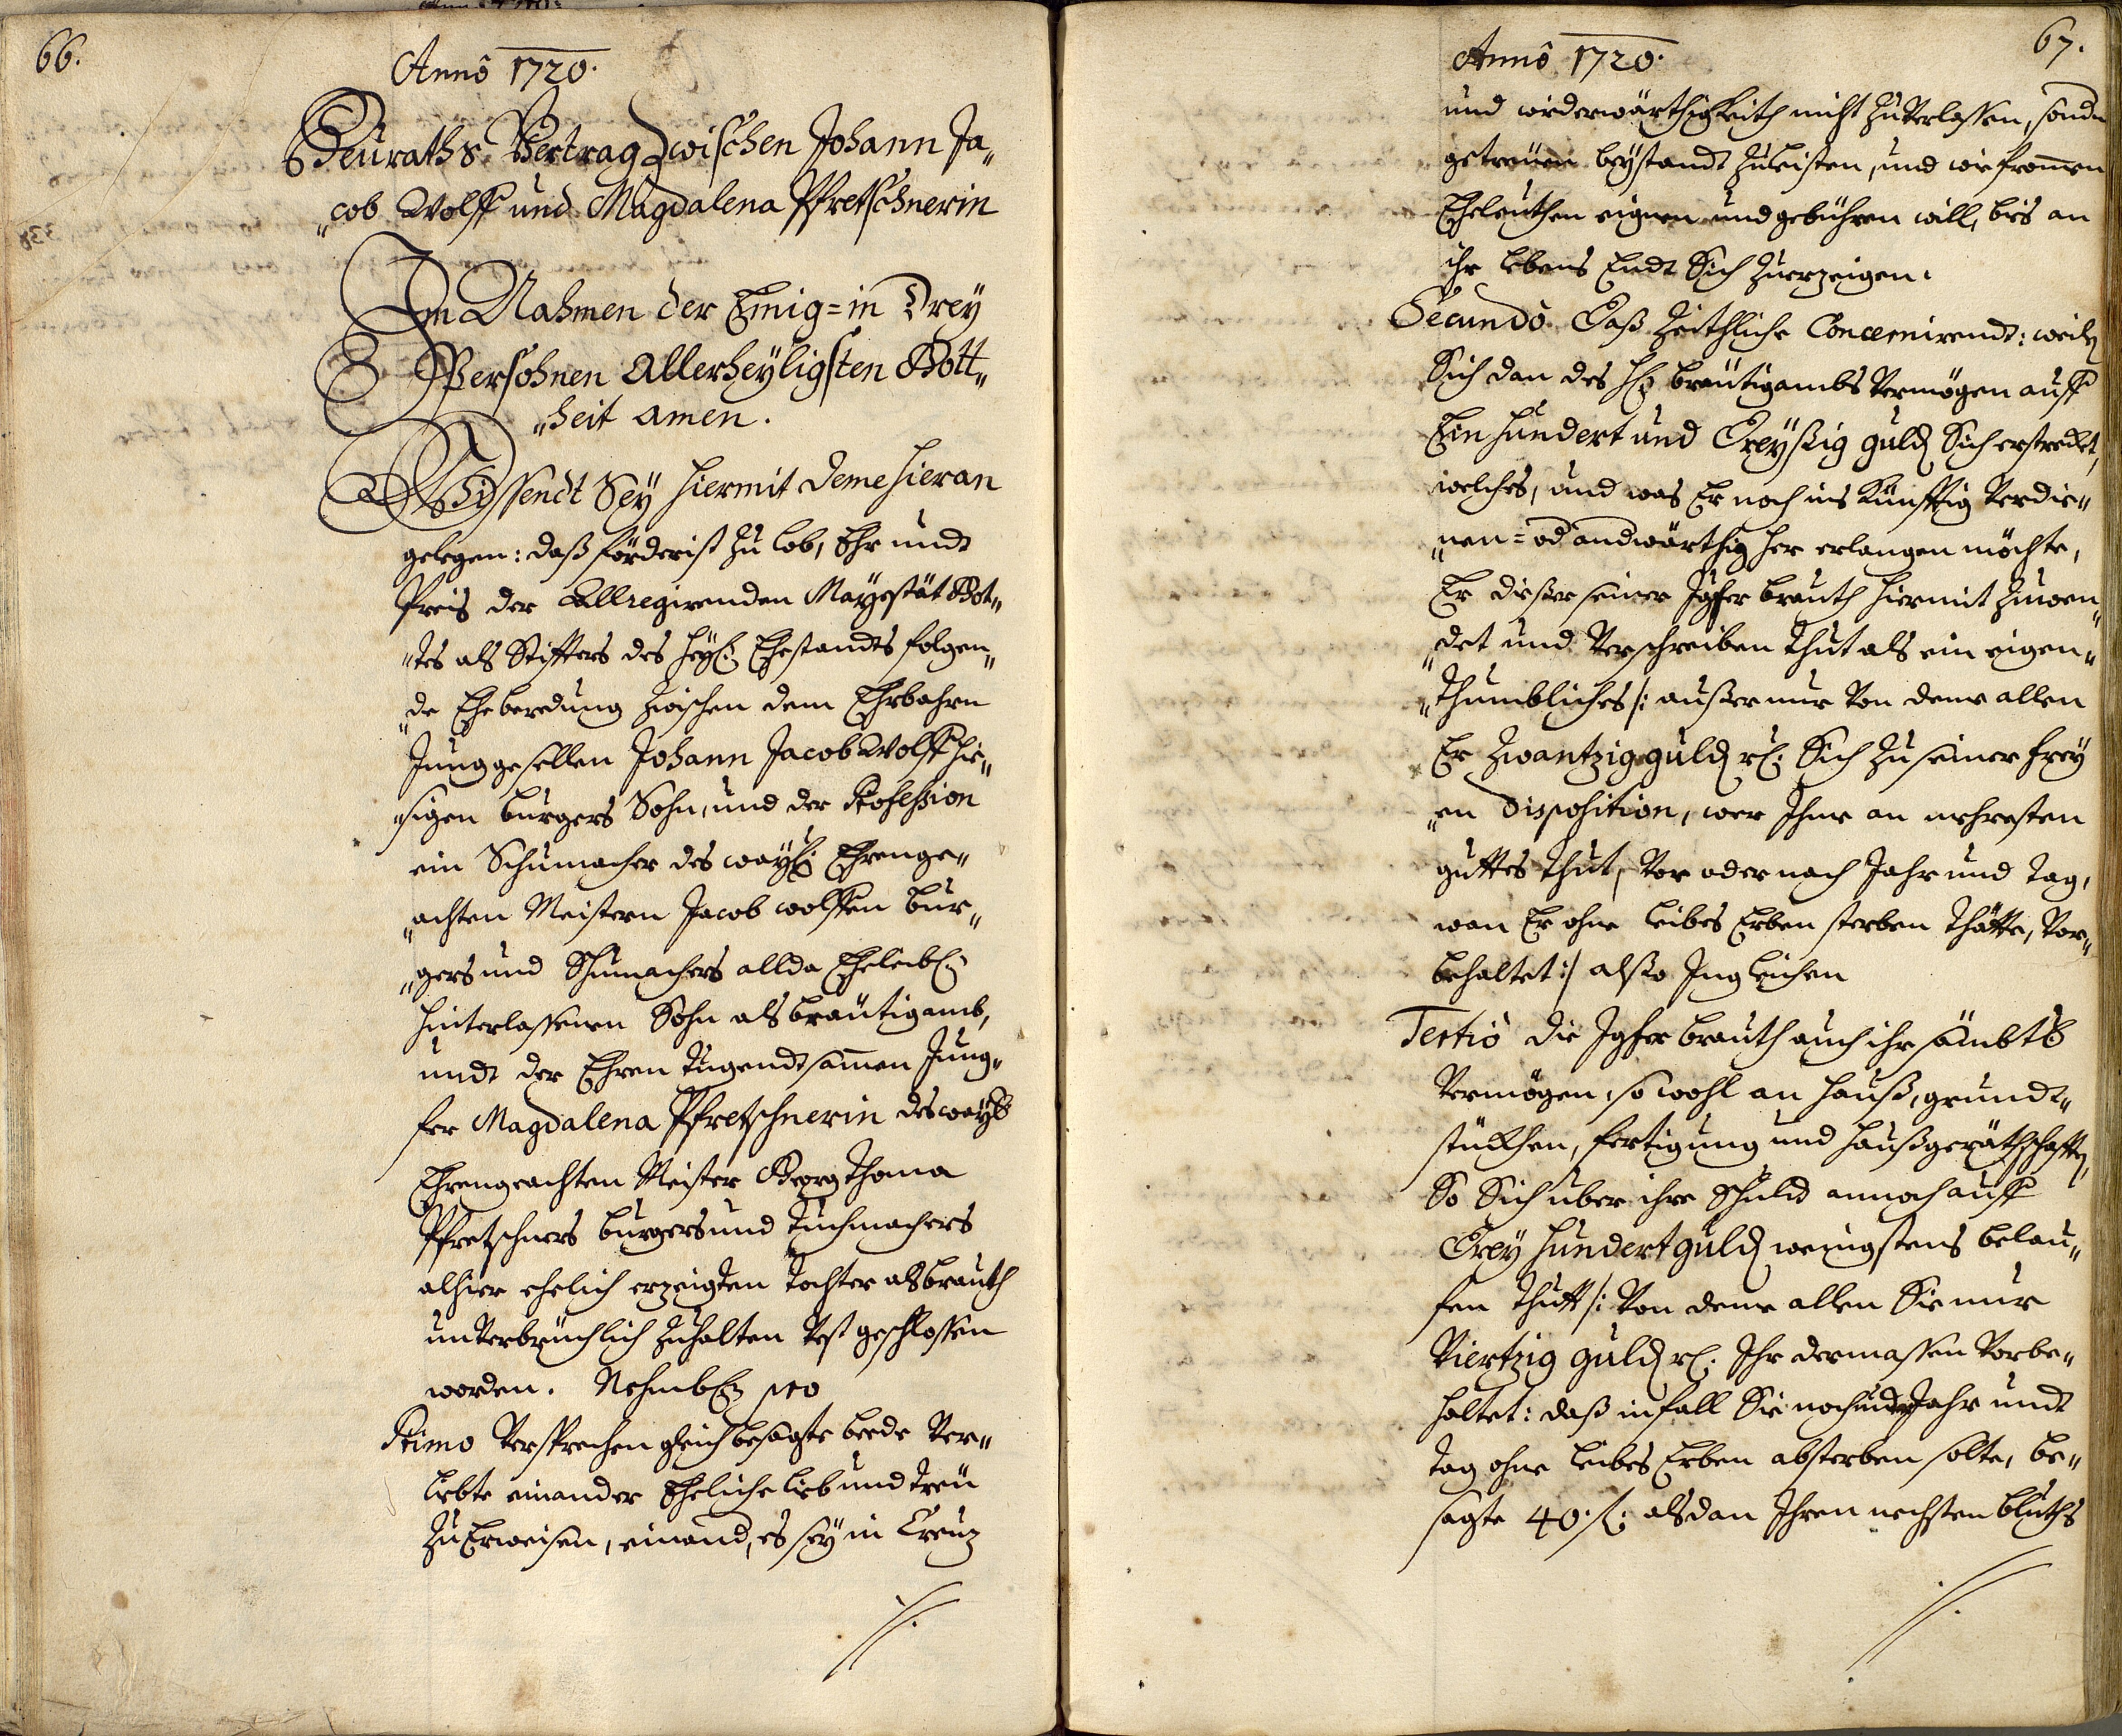 66.
Annô 1720.
Heuraths Vertrag Zwischen Johann Ja„
„cob Wolff und Magdalena Pfretschnerin
Im Nahmen der Einig=in Drey
Persohnen Allerheyligsten Gott„
„heit Amen.
Wissendt Sey hiermit deme hieran
gelegen: daß förderist zu lob, Ehr undt
Preis der Allregirenden Mayestät Got„
„tes als Stiffters des heyl: Ehestandts folgen„
„de Eheberedung zwischen dem Ehrbahrn
Junggesellen Johann Jacob Wolff hie„
„sigen burgers Sohn, und der Profession
ein Schumacher des wayl: Ehrenge„
„achten Meistern Jacob wolffen bur„
„gers und Schumachers allda Eheleibl:
hinterlassenen Sohn als bräutigamb,
undt der Ehren tugendtsamen Jung„
fer Magdalena Pfretschnerin des wayl:
Ehrengeachten Meister Georg Thoma
Pfretschners burgers und Tuchmachers
alhier ehelich erzeigten Tochter als brauth
unverbruchlich zuhalten vest geschlossen
worden. Nehmbl: pro
Primo Versprechen gleich besagte beede Ver„
liebte einander Eheliche lieb und treü
zu Erweisen, einand, es sey in Creuz
67.
Annô 1720.
und wiederwärthigkeith nicht zuverlassen, sondn
getreüen beystandt zuleisten, und wie from̄en
Eheleuthen eignen und gebühren will, bis an
ihr lebens Endt Sich zuerzeigen.
Secundô Daß Zeithliche Concernirendt: weiln
Sich dan des Hr: bräutigambs Vermögen auff
Ein hundert und Dreyßig guld Sich erstreckt,
welches, und was Er noch ins künfftig verdie„
„nen= od andwärthig her erlangen möchte,
Er dießer seiner Jgfer brauth hiermit zuwen„
„det und verschreiben thut als ein eigen„
„thumbliches /: außer nur von deme allen
Er Zwantzig guld rl: Sich zu seiner frey
„en Disposition, wer Ihme an nehesten
guttes thut, vor oder nach Jahr und tag,
wan Er ohne leibes Erben sterben thätte, vor„
behaltet :/ alßo Ingleichen
Tertiô die Jgfer brauth auch ihr sämbtl:
Vermögen, so wohl an hauß, grundt„
stückhen, fertigung und haußgeräthschafftn,
So Sich über ihre Schuld annoch auff
Drey hundert guld wenigstens belau„
fen thutt /: Von deme allen Sie nur
Viertzig guld rl: Ihr dermassen Vorbe„
haltet: daß in fall Sie noch Jahr undt
tag ohne leibes Erben absterben solte, be„
sagte 40. fl: alsdan Ihren nechsten bluths